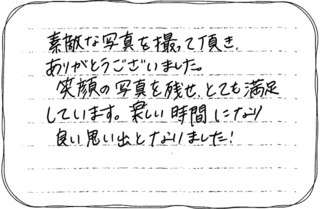 素敵な写真を撮って頂き、
ありがとうございました。
笑顔の写真を残せ、とても満足
しています。楽しい時間になり
良い思い出となりました!